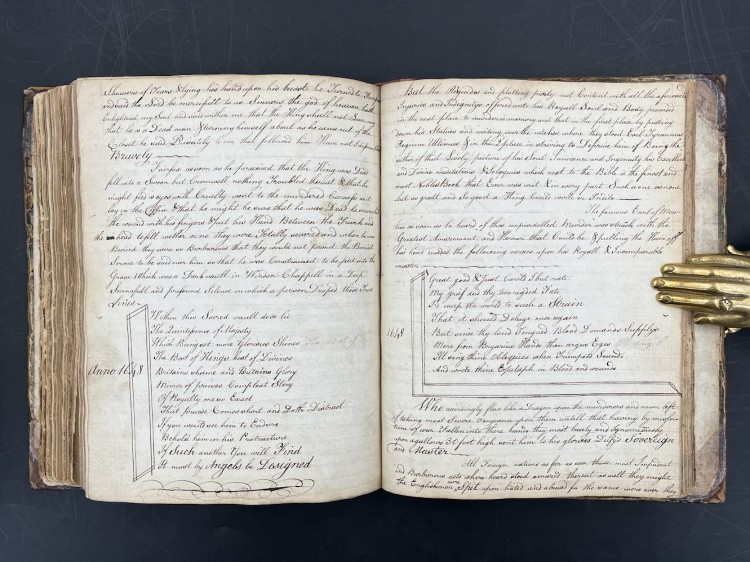 Showers of Tears & lying his hand upon his breast he Turned to
and said the Lord be mercifull to us Sinners the god of heaven hath
Enlightned my Soul and
that he is a Dead man & turning himself about as he came out of the
Closet he said Privately to one that followed him Have not I
Bravely
Fairfax as soon as he perceived that the King was Dead
fell into a Swoon but Cromwell nothing Troubled thereat & that he
might his eyes with Cruelty went to the murdered Carcase as it
lay in the Coffin & that he might be sure that he was Dead he
the wound with his fingers & put his Hand Between the Trunk and
the head to feel wether or no they were Totally severed and when he
Buried they were so Barbarous that they would not permit the Buriall
Service to be said over him so that he was Constrained to be put into the
Grave which was a Dark vault in Windsor Chappell in a Deep
Snowfall and profound Silence in which a person Droped these few
Lines
Anno 1648
Within this Sacred vault doth lie
The Quintesence of Majesty
Which Being set more Glorious Shines
The Best of Kings best of Divines
Britains shame and Britains Glory
Mirror of princes Compleat Story
Of Royalty one so Exact
That praises Comes short and Doth Distract
If you would see him to Endure
Behold him in his Portracture
If Such another You will Find
It must by Angels be Designed
But the Regicides and plotting party not Content with all the aforesaid
Injuries and Indignitys offered unto his Royall Soul and Body proceeded
in the next place to murder his memory and that in the first place by pulling
down his Statues and writing over the nitches where they stood Exit Tyrannus
Regum Ultimus & in the 2 place in striving to Deprive him of Being the
author of that lively picture of his Soul Innocence and Ingenuity his Excellent
and Devine meditations & Soloquies which next to the Bible is the finest and
most Noblest Book that Ever was writ in every part Such a one as none
but so great and so good a King Could write or Indite
The famous Earl of
as soon as he heard of this unparrallelled Murder was struck with the
Greatest Amazement and Horror that Could be & pulling the Glove off
his hand maked the following verses upon his Royall & Incomparable
master
1648
Great good & Just Could I but rate
My grief and thy too ridged Fate
I'd weep the world to such a Strain
That it should Deluge once again
But since thy loud Tongued Blood Demands Supplys
More from Bryarius Hands than argus Eyes
I'll sing thine Obsequies when Trumpets Sounds
And wrote thine Epitaph in Blood and wounds
Who accordingly flies like a Dragon upon the murderors and never left
of taking most severe Vengeance upon them untill that haveing by misfor-
tune of war Fallen into there hands they most basely and Ignominiously
upon a gallows 30 foot high sent him to his glorious Deity'd Sovereign
and Master
All Foreign nations as far as ever those most Impudent
and Barbarous acts where heard stood amazed thereat as well they might
the Englishmen were Spit upon hated and abused for the same were ever they